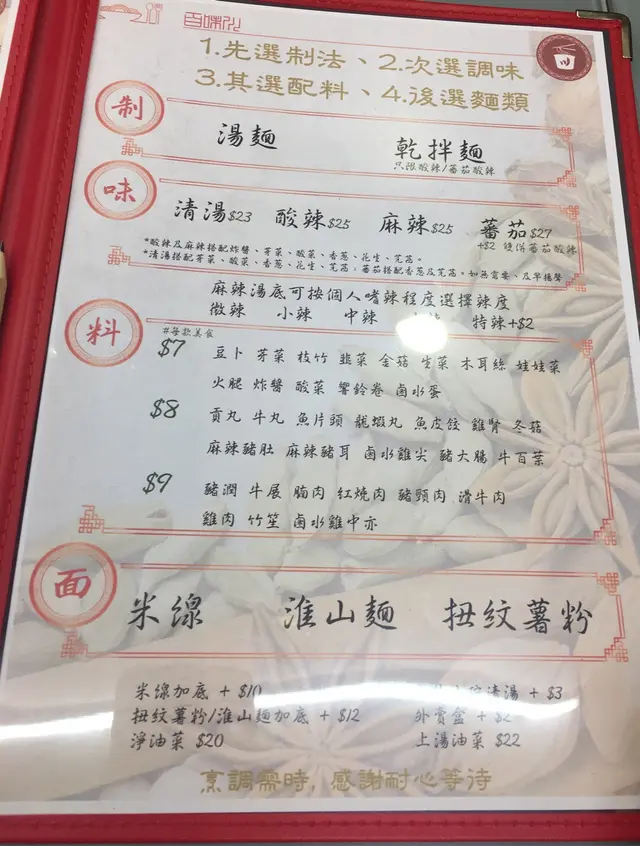 百味八
1.先選制法、2.次選調味
3.其選配料、4.後選麵類
制
湯麵 乾拌麵
只限酸辣/蕃茄酸辣
味
清湯$23 酸辣$25 麻辣$25 蕃茄$27
+$2 雙併蕃茄酸辣
*酸辣及麻辣搭配炸醬、芽菜、酸菜、香葱、花生、芫荽。
*清湯搭配芽菜、酸菜、香葱、花生、芫荽;蕃茄搭配香葱及芫荽。如無需要、及早揚聲
麻辣湯底可按個人嗜辣程度選擇辣度
微辣 小辣 中辣 特辣+$2
料
#每款美食
$7 豆卜 芽菜 枝竹 韮菜 金菇 生菜 木耳絲 娃娃菜
火腿 炸醬 酸菜 響鈴卷 鹵水蛋
$8 貢丸 牛丸 魚片頭 龍蝦丸 魚皮餃 雞腎 冬菇
麻辣豬肚 麻辣豬耳 鹵水雞尖 豬大腸 牛百葉
$9 豬潤 牛展 腩肉 紅燒肉 豬頸肉 滑牛肉
雞肉 竹笙 鹵水雞中亦
面
米線 淮山麵 扭紋薯粉
米線加底 + $10 清湯 + $3
扭紋薯粉/淮山麵加底 + $12 外賣盒 + $2
淨油菜 $20 上湯油菜 $22
烹調需時,感謝耐心等待